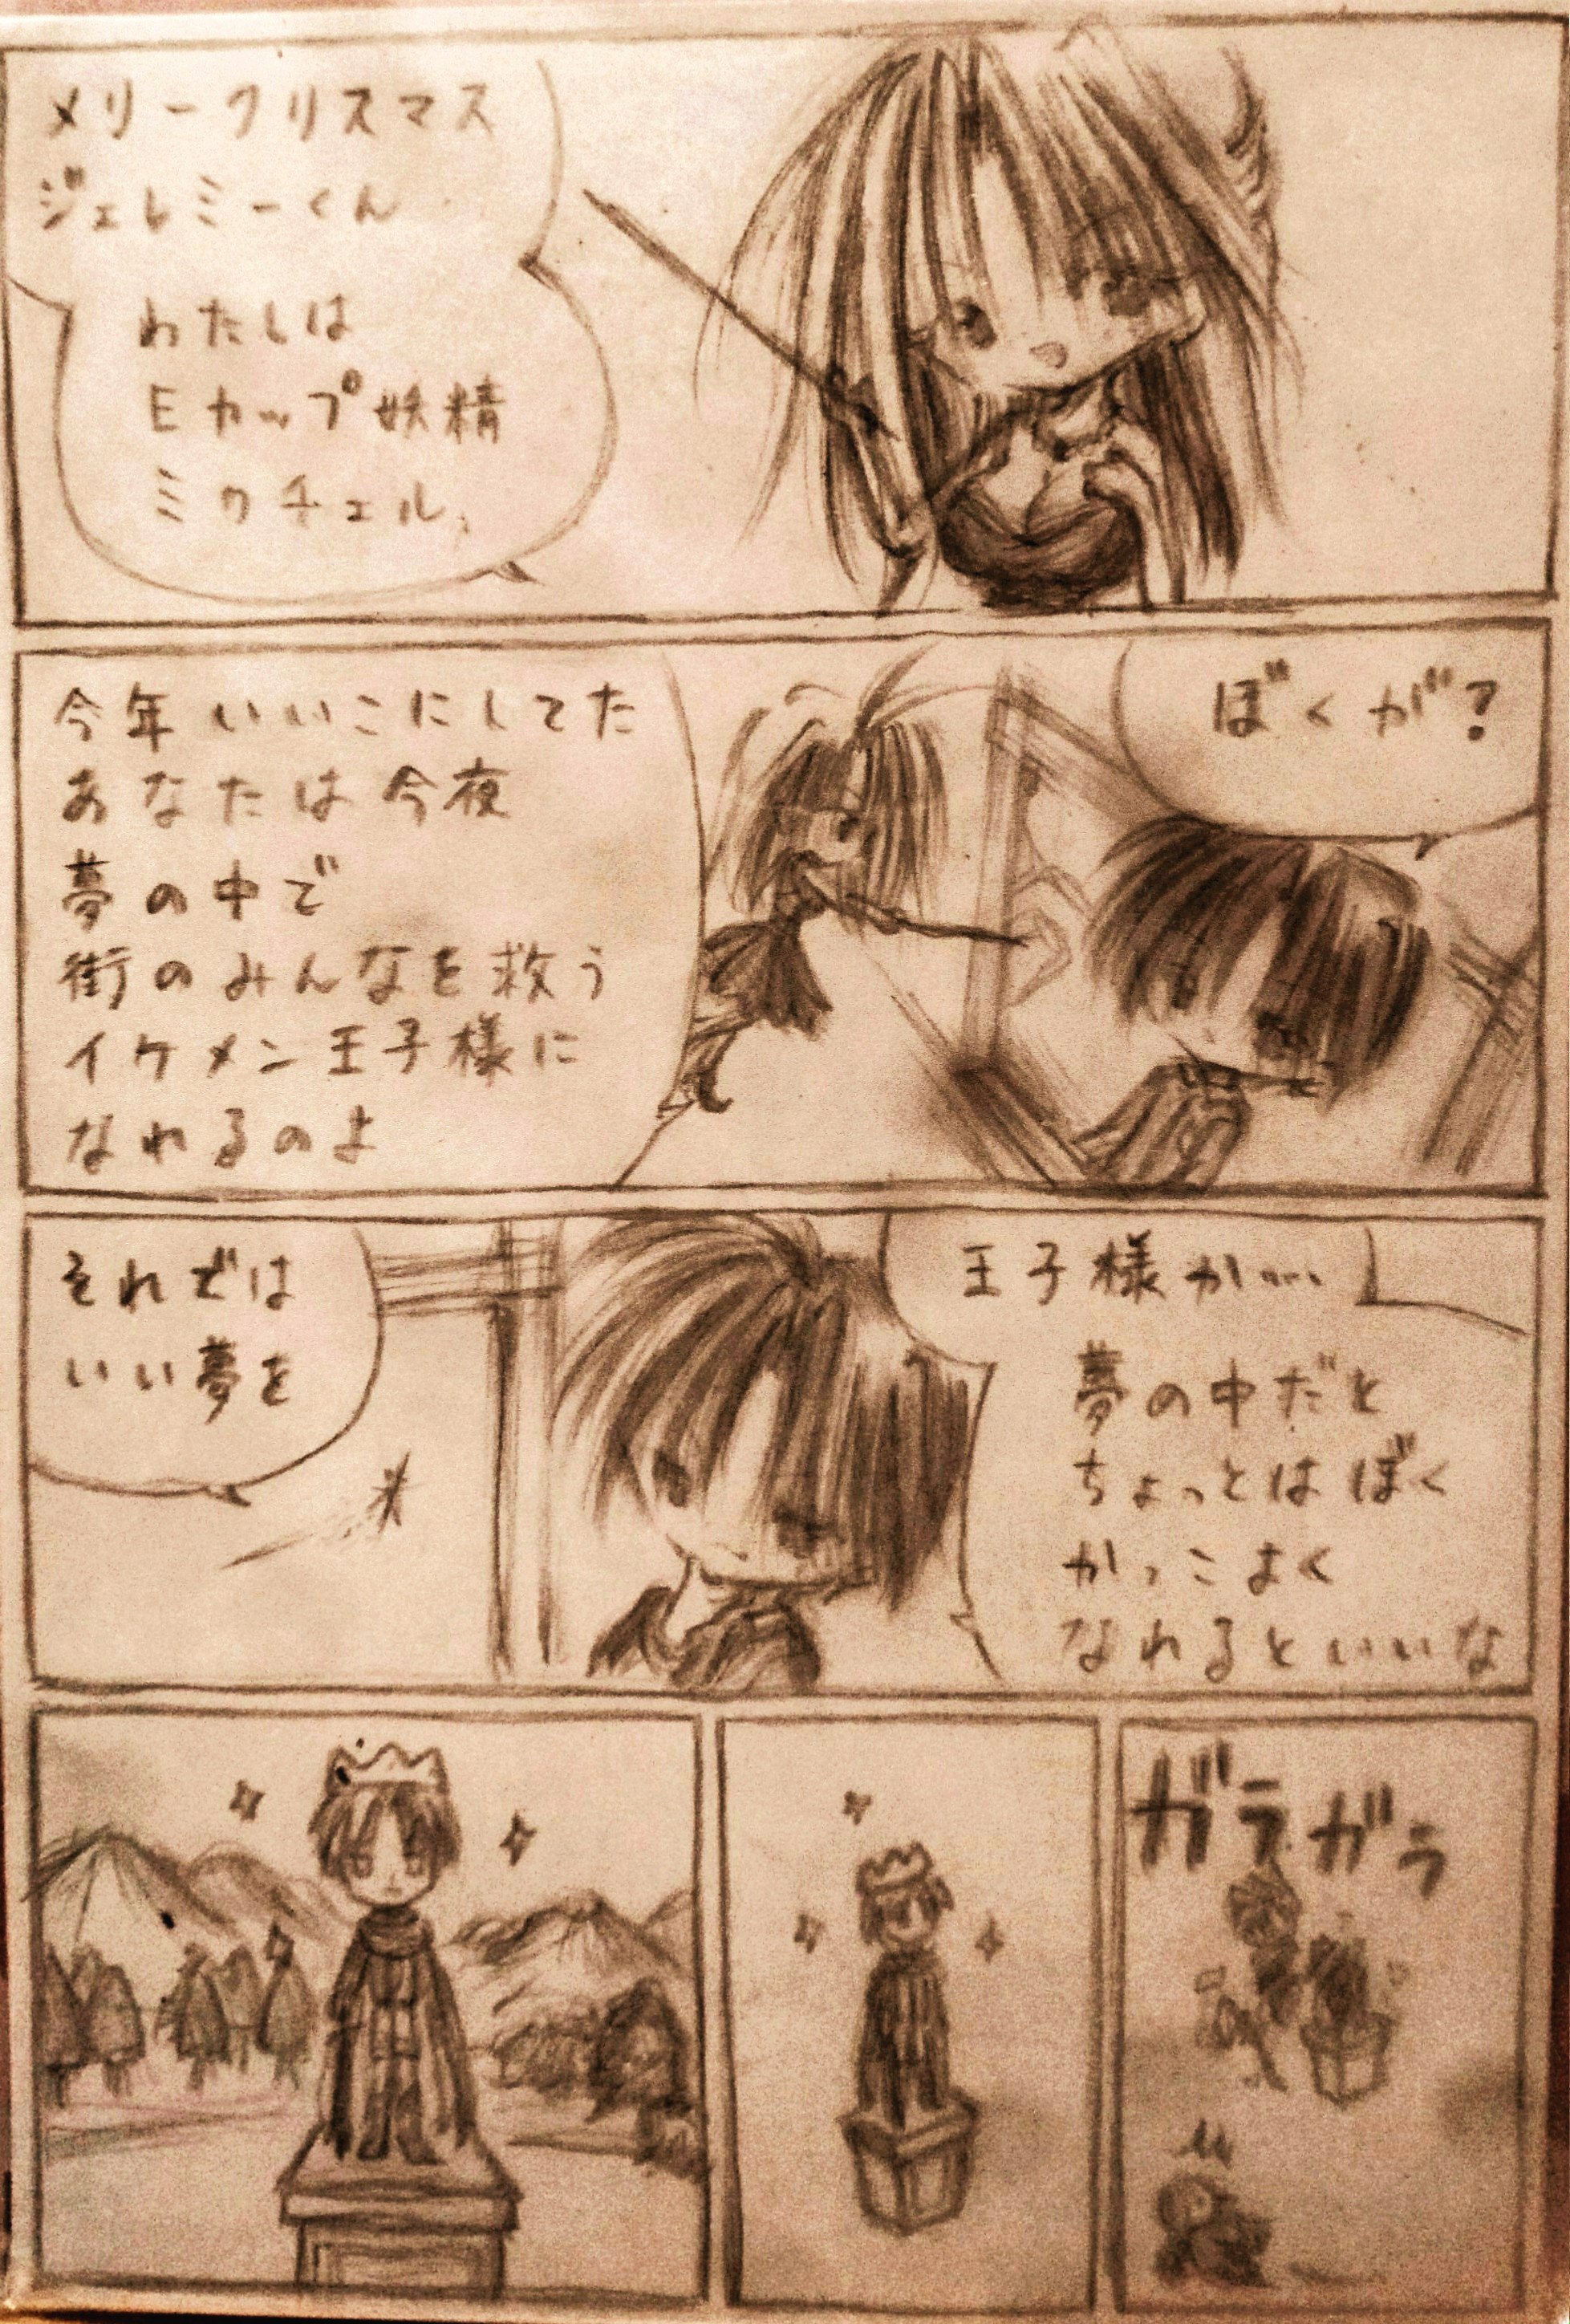 メリークリスマス
ジェレミーくん
わたしは
Eカップ妖精
ミクチェル
今年いいこにしてた
あなたは今夜
夢の中で
街のみんなを救う
イケメン王子様に
なれるのよ
ぼくが?
それでは
いい夢を
王子様か……
夢の中だと
ちょっとはぼく
かっこよく
なれるといいな
ガラガラ